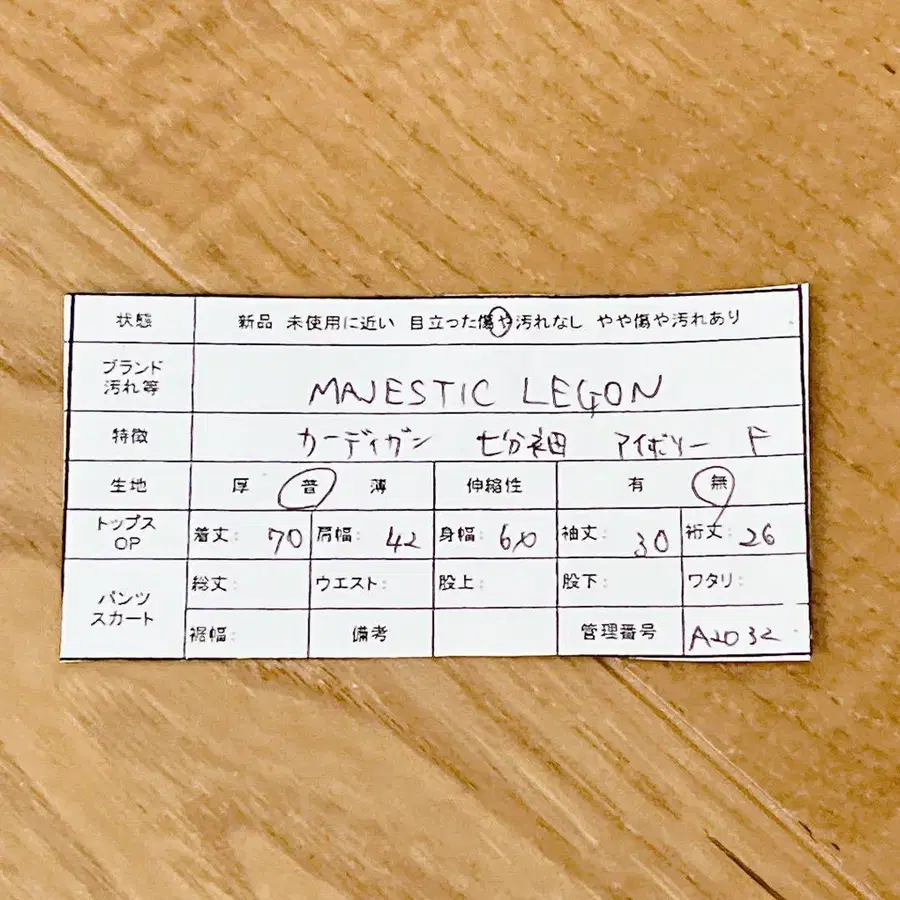 状態 新品 未使用に近い 目立った傷や汚れなし やや傷や汚れあり
ブランド
汚れ等
MAJESTIC LEGON
特徴 カーディガン 七分袖 アイボリー F
生地 厚 普 薄 伸縮性 有 無
トップス
OP
着丈: 70 肩幅: 42 身幅: 60 袖丈: 30 裄丈: 26
パンツ
スカート
総丈: ウエスト: 股上: 股下: ワタリ:
裾幅: 備考 管理番号 A2032